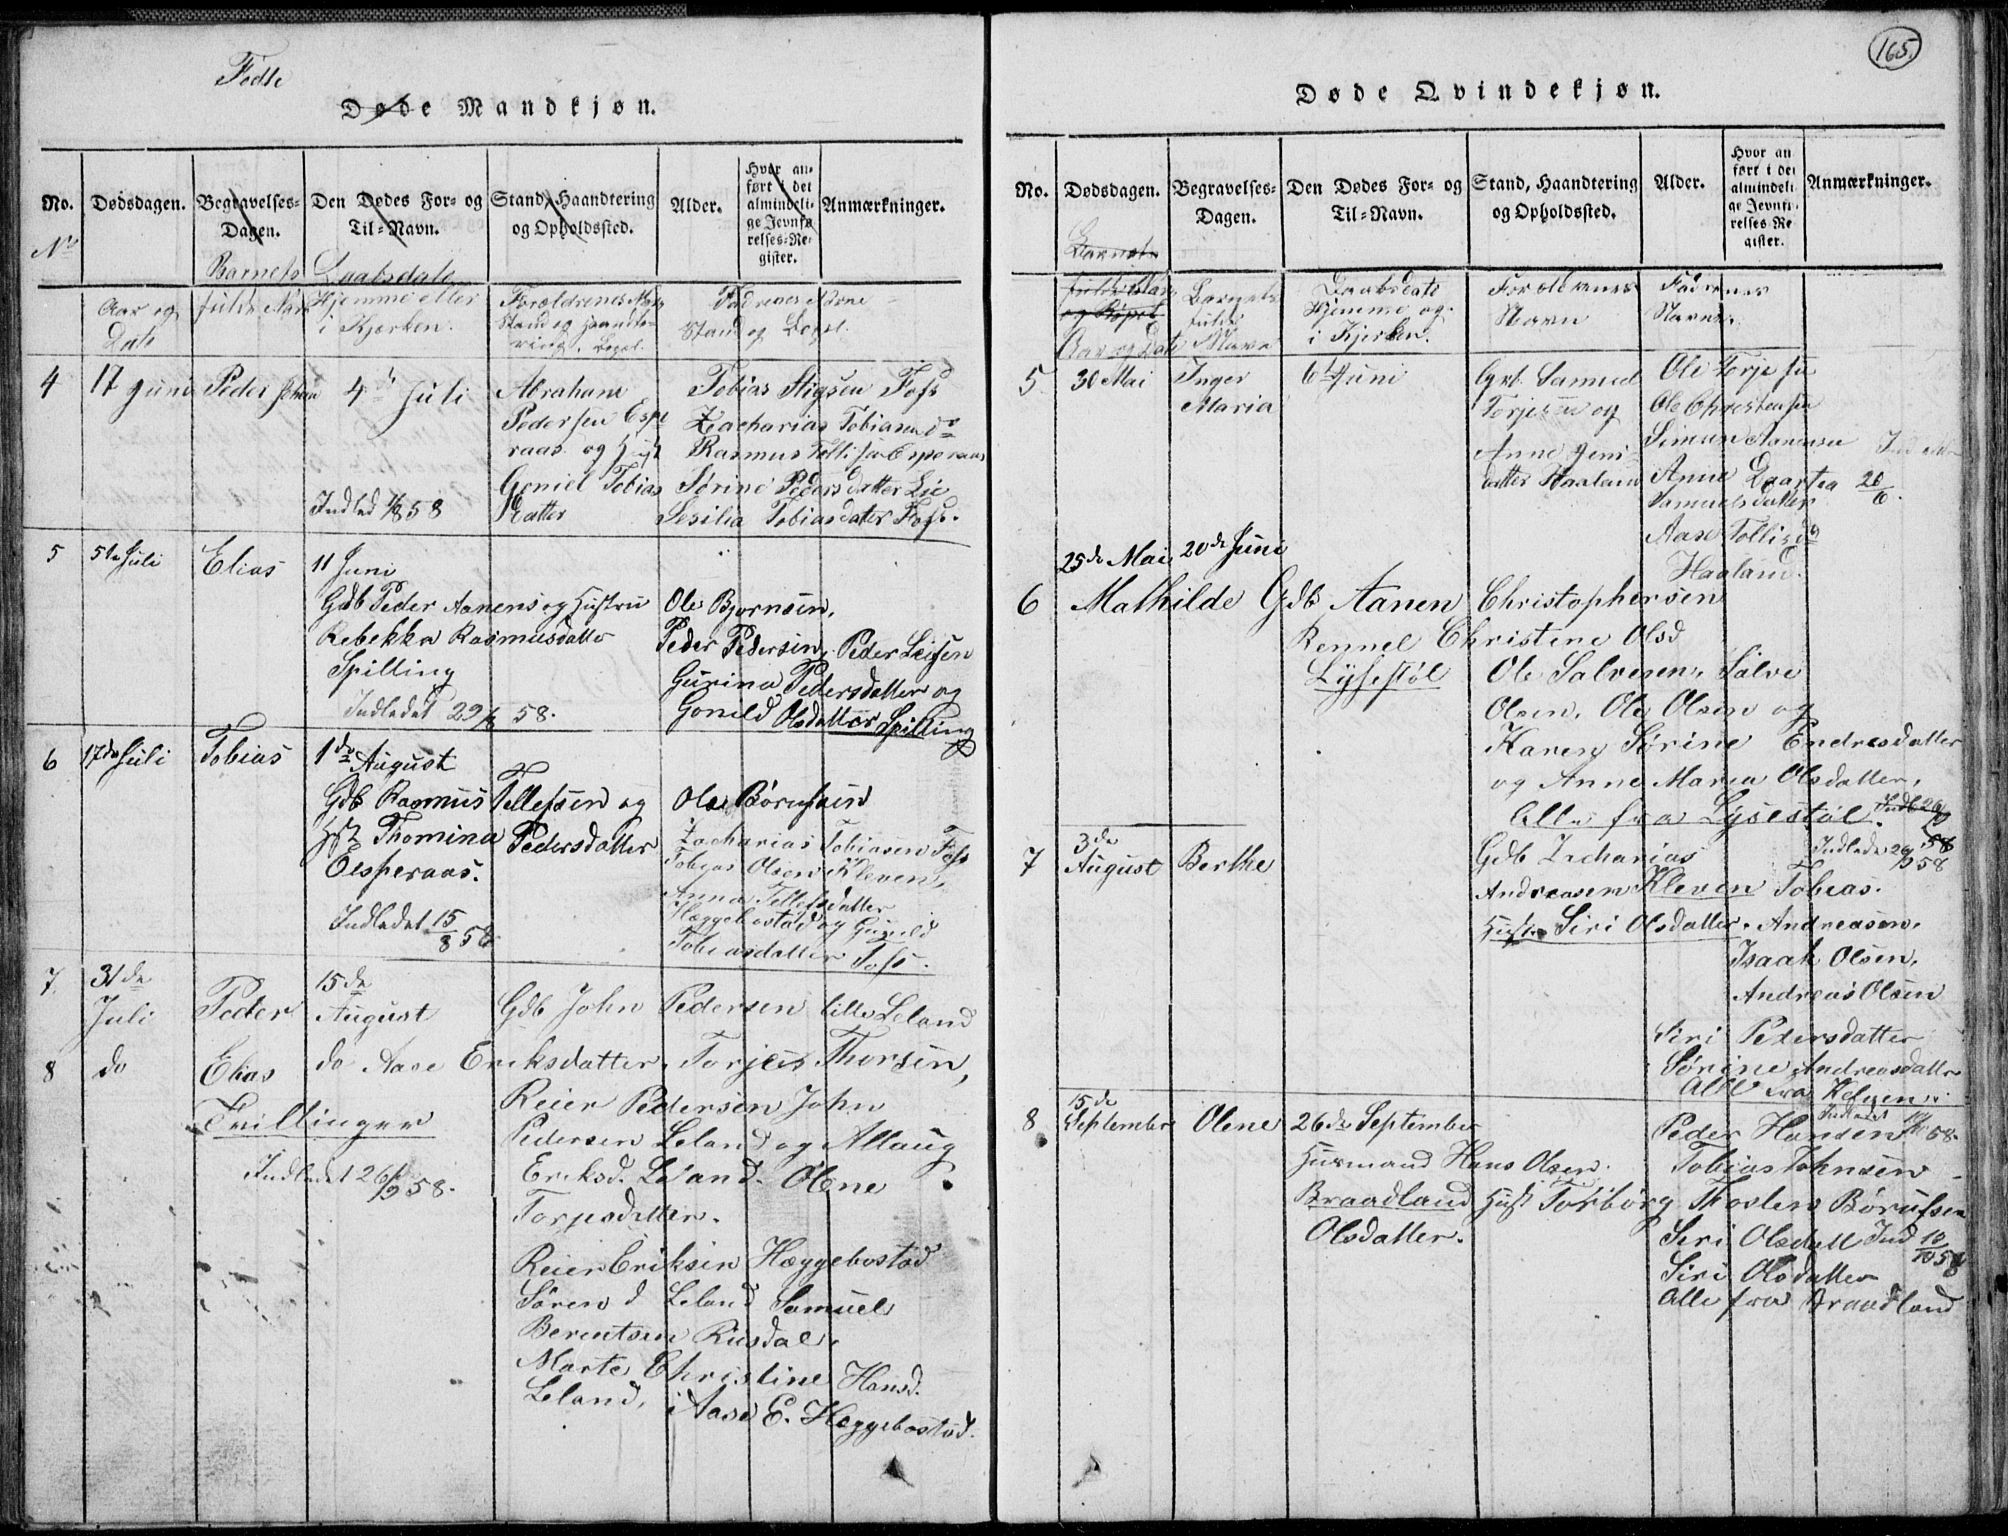 Fødte
Døde Mandkjøn.
No. Dødsdagen. Begravelses-Dagen. Den Dødes For- og Til-Navn. Stand, Haandtering og Opholdssted. Alder. Hvor anført i det almindelige Jevnførelses-Register. Anmærkninger.
No
Aar og Date
Barnets fulde Navn
Daabsdate Hjemme eller i Kjerken.
Forældrenes Navn Stand og Haandtering. Bopel.
Fadrenes Navne Stand og Bopel.
4 17 Juni Peder Johan 4de Juli
Abraham
Pedersen Espe
raas og Hust
Goniel Tobias
Datter
Indled 1/8 58
Tobias Stigsen Foss
Zacharias Tobiasen do
Rasmus Tollisen Esperaas
Sørine Pedersdatter Lie
Sesilia Tobiasdatter Foss.
5 5te Juli Elias 11 Juni
Gdb Peder Aanens og Hustru
Rebekka Rasmusdatter
Spilling
Indledet 29/8 58.
Ole Bjornsen,
Peder Pedersen, Peder Leifsen
Gurina Pedersdatter og
Gonild Olsdatter Spilling
6 17de Juli Tobias 1de August
Gdb Rasmus Tellefsen og
Hst Thomina Pedersdatter
Eesperaas.
Indledet 15/8 58
Ole Børufsen
Zacharias Tobiasen Foss
Tobias Olsen Kleven,
Anna Tellefsdatter
Hæggebostad og Gunild
Tobiasdatter Foss.
7 31de Juli Peder 15de August
Gdb John Pedersen lille Leland
8 do Elias do Aase Eriksdatter. Torjeus Thorsen,
Tvillinger
Indledet 26/9 58.
Reier Pedersen John
Pedersen Leland og Allaug
Eriksd. Leland. Olene
Torjesdatter.
Reier Eriksen Hæggebostad
Søren d Leland Samuel
Berentsen Risdal,
Marte Christine Hansd.
Leland, i Aase E. Hæggebostad.
165.
Døde Qvindekjøn.
No. Dødsdagen. Begravelses-Dagen. Den Dødes For- og Til-Navn. Stand, Haandtering og Opholdssted. Alder. Hvor anført i det almindelige Jevnførelses-Register. Anmærkninger.
Barnets
fulde Navn
og Bopel
Aar og Date
Barnets fulde Navn
Daabsdate Hjemme og i Kjerken.
Forældrenes Navn
Fadrenes Navne.
5 30 Mai Inger Maria 6te Juni
Grt. Samuel
Torjesen og
Anne Jens
datter Haaland
Ole Torjesen
Ole Christensen
Simon Aanensen
Anne Daartea
Samuelsdatter
Aase Tollisd
Haaland.
20/6.
25de Mai 20de Juni
6 Mathilde Gdb Aanen Christophersen
Rennel Christine Olsd
Lysestøl
Ole Salvesen, Salve
Olsen, Ole Olsen og
Karen Sørine Endresdatter
og Anne Maria Olsdatter,
Alle fra Lysestøl.
7 3de August Berthe
Gdb Zacharias
Andreasen Kleven Tobias.
Hustr Siri Olsdatter. Andreasen,
Indledet 29/9 58
Isaak Olsen,
Andreas Olsen
Siri Pedersdatter
Sørine Andreasdatter
Alle fra Kleven.
8 15de September Olene 26de September
Husmand Hans Olsen
Braadland Hust Torborg
Olsdatter.
Peder Hansen
Tobias Johnsen
Thosten Børufsen
Siri Olsdatt Ind 10/10 58
Siri Olsdatter
Alle fra Braadland